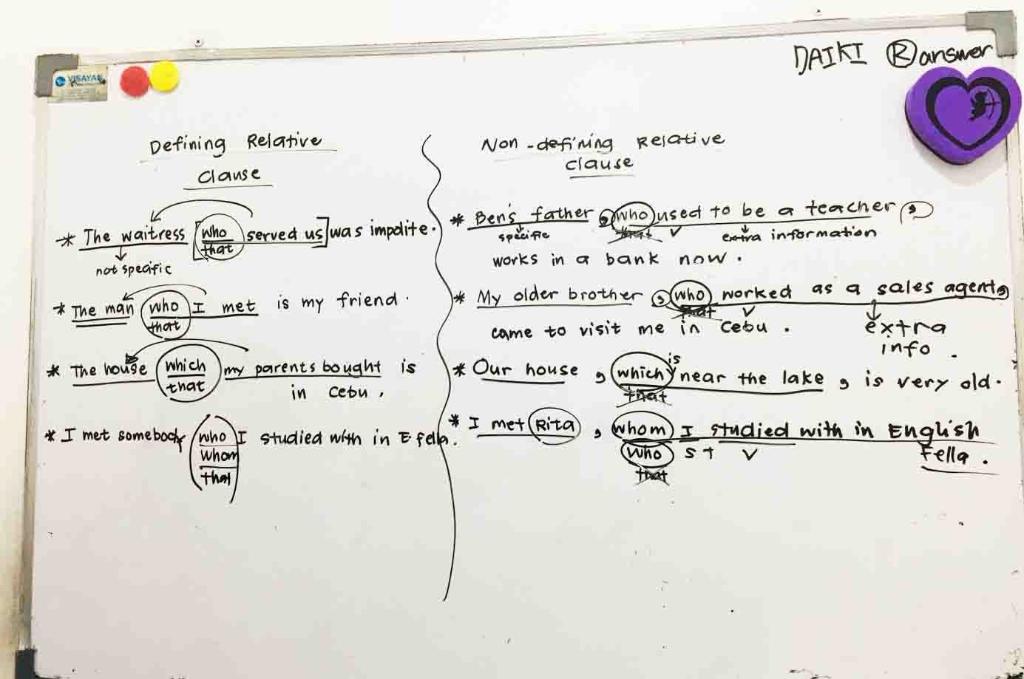 DAIKI Ⓡ answer
VISAYAN
Defining Relative
Clause
* The waitress [who served us] was impolite.
that
not specific
* The man who I met is my friend.
that
* The house which my parents bought is
that
in Cebu,
* I met somebody who I studied with in E fella.
whom
that
Non-defining Relative
Clause
* Ben's father, who used to be a teacher,
specific that v extra information
works in a bank now.
* My older brother, who worked as a sales agent,
that v
came to visit me in Cebu. extra
info.
is
* Our house, which near the lake, is very old.
that
* I met Rita, whom I studied with in English
who S + V Fella.
that